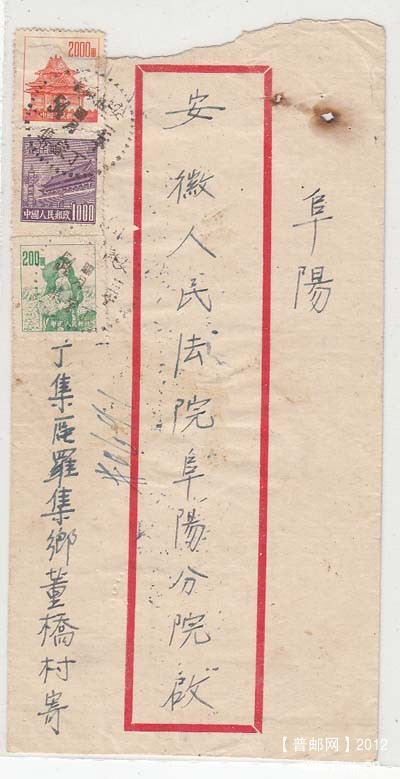 阜陽
安徽人民法院阜陽分院啟
丁集區羅集鄉董橋村寄
2000圓
中國人民郵政 1000
200圓
【普邮网】2012